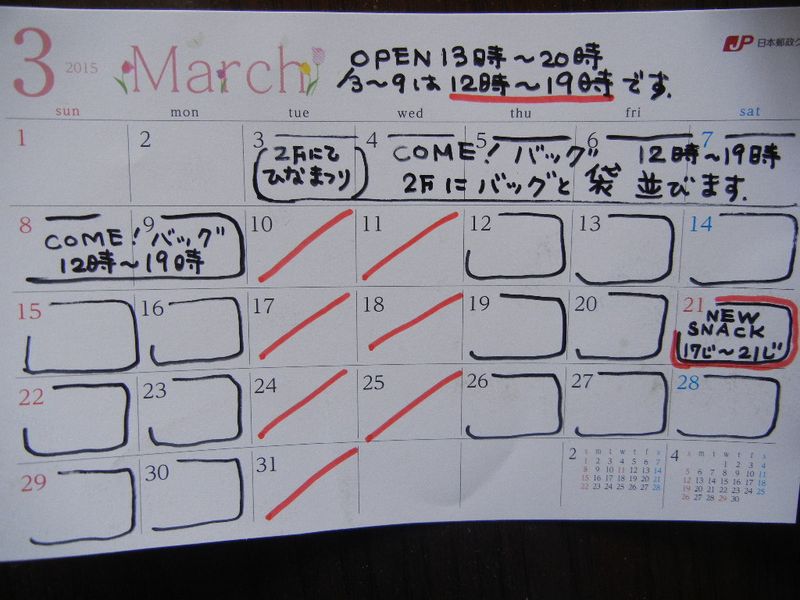 3 2015 March
OPEN 13時～20時
3～9は 12時～19時です.
JP 日本郵政
sun mon tue wed thu fri sat
1 2 3 4 5 6 7
2Fにて
ひなまつり
COME! バッグ 12時～19時
2Fにバッグと袋 並びます.
8 9 10 11 12 13 14
COME! バッグ
12時～19時
15 16 17 18 19 20 21
NEW
SNACK
17じ～21じ
22 23 24 25 26 27 28
29 30 31
2 s m t w t f s
1 2 3 4 5 6 7
8 9 10 11 12 13 14
15 16 17 18 19 20 21
22 23 24 25 26 27 28
4 s m t w t f s
1 2 3 4
5 6 7 8 9 10 11
12 13 14 15 16 17 18
19 20 21 22 23 24 25
26 27 28 29 30